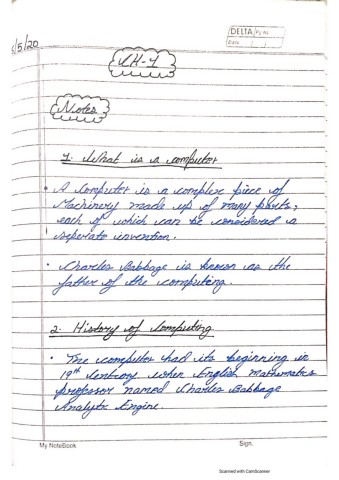 DELTA Pg No.
Date
/5/20
CH-1
Notes
1. What is a computer
• A Computer is a complex piece of
Machinery made up of many parts,
each of which can be considered a
seperate invention.
• Charles Babbage is known as the
father of the computing.
2. History of Computing
• The computer had its beginning in
19th Century when English mathematics
professor named Charles Babbage
Analytic Engine.
My NoteBook
Sign.
Scanned with CamScanner